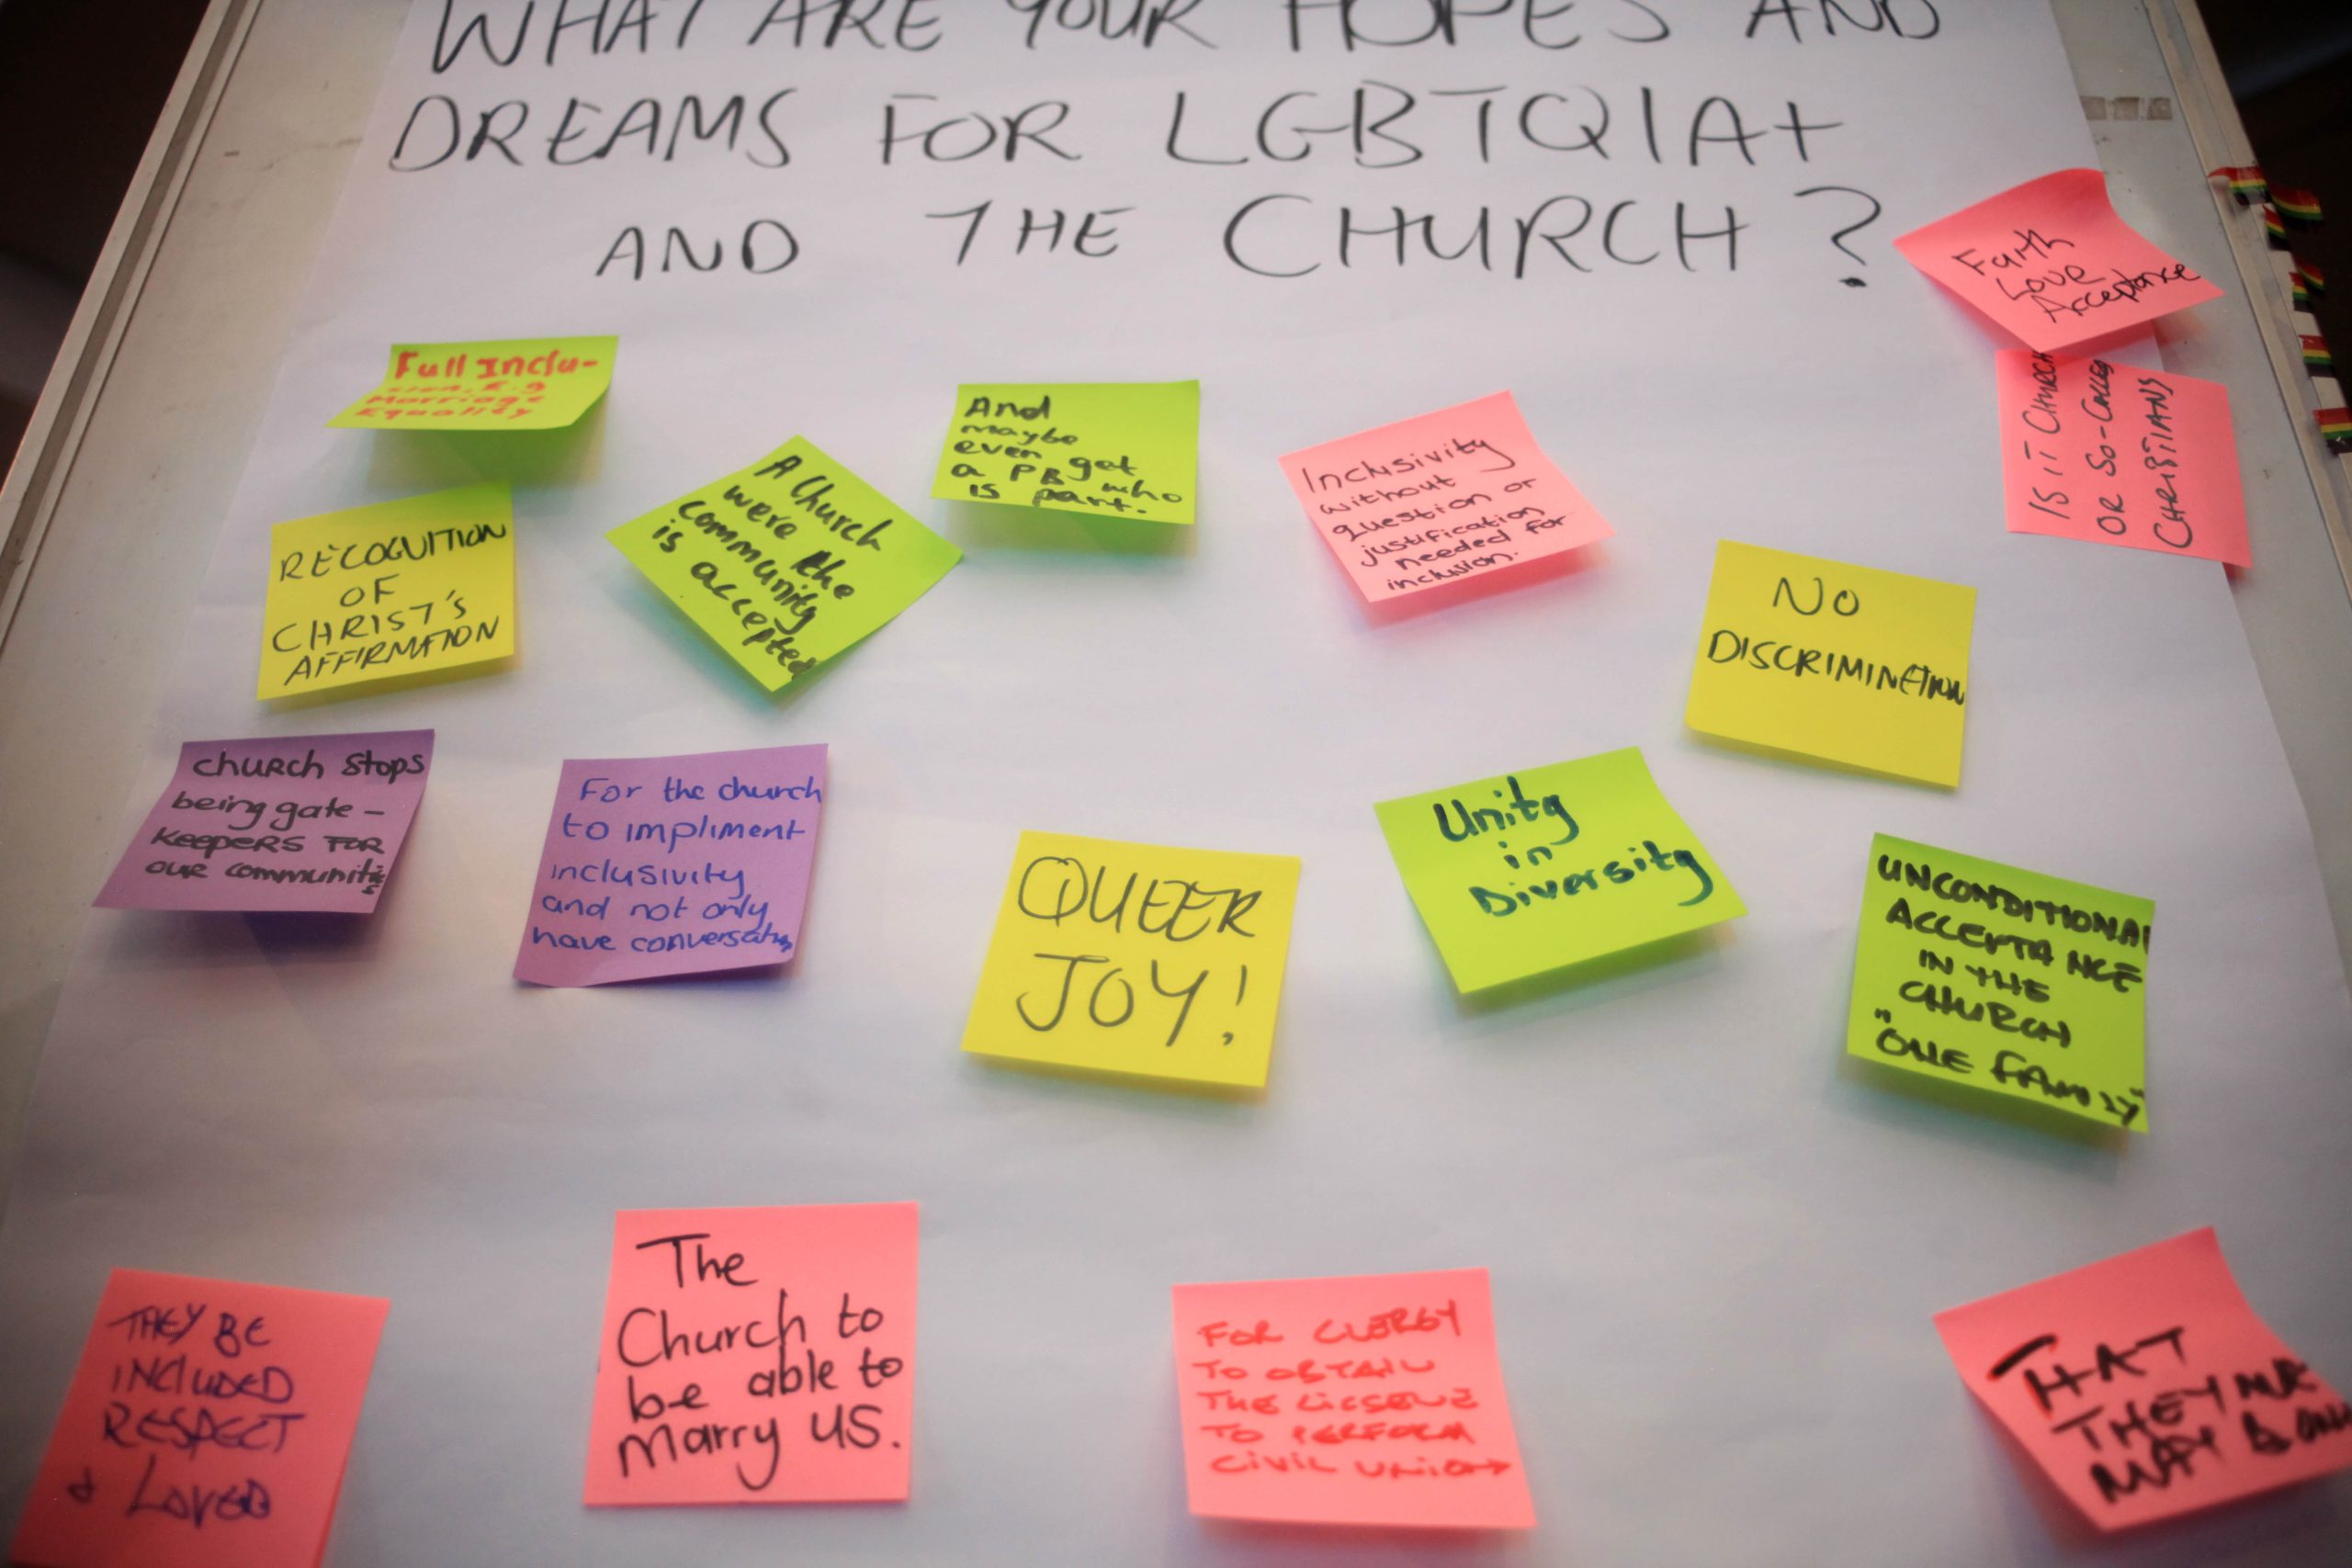 WHAT ARE YOUR HOPES AND
DREAMS FOR LGBTQIA+
AND THE CHURCH?
Faith
Love
Acceptance
IS IT CHURCH
OR SO-CALLED
CHRISTIANS
Full Inclu-
sion. E.g
Marriage
Equality
And
maybe
even get
a PB who
is part.
Inclusivity
without
question or
justification
needed for
inclusion.
A Church
were the
community
is accepted
RECOGNITION
OF
CHRIST'S
AFFIRMATION
NO
DISCRIMINETION
church stops
being gate-
keepers FOR
our community
For the church
to impliment
inclusivity
and not only
have conversation
QUEER
JOY!
Unity
in
Diversity
UNCONDITIONAL
ACCEPTANCE
IN THE
CHURCH
"ONE FAMILY"
THEY BE
INCLUDED
RESPECT
& LOVED
The
Church to
be able to
Marry us.
FOR CLERGY
TO OBTAIN
THE LICSENCE
TO PERFORM
CIVIL UNION
THAT
THEY
MAY B